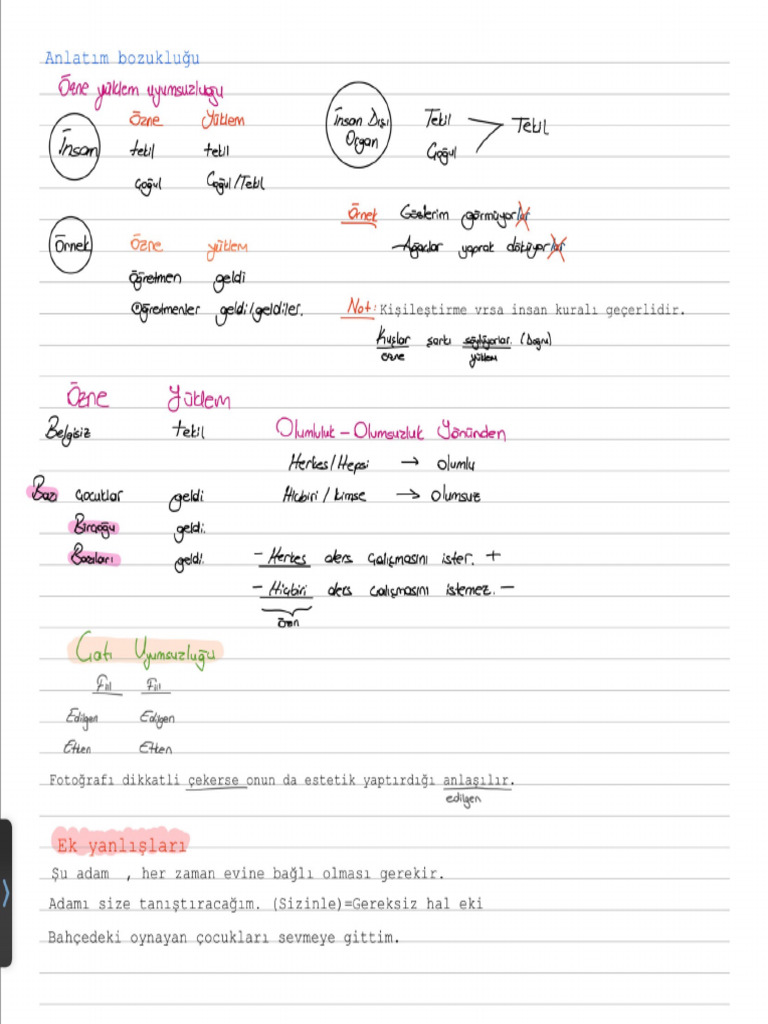 Anlatım bozukluğu
Özne yüklem uyumsuzluğu
İnsan
Özne Yüklem
tekil tekil
Çoğul Çoğul/Tekil
İnsan Dışı Organ
Tekil
Çoğul
Tekil
Örnek Gözlerim görmüyorlar
Ağaçlar yaprak döküyorlar
Örnek
Özne yüklem
Öğretmen geldi
Öğretmenler geldi/geldiler.
Not: Kişileştirme vrsa insan kuralı geçerlidir.
Kuşlar şarkı söylüyorlar. (Doğru)
özne yüklem
Özne Yüklem
Belgisiz tekil
Bazı çocuklar geldi
Birçoğu geldi.
Bazıları geldi.
Olumluluk - Olumsuzluk Yönünden
Herkes/Hepsi → olumlu
Hiçbiri / kimse → olumsuz
- Herkes ders çalışmasını ister. +
- Hiçbiri ders çalışmasını istemez. -
Çatı Uyumsuzluğu
Fiil Fiil
Edilgen Edilgen
Etken Etken
Fotoğrafı dikkatli çekerse onun da estetik yaptırdığı anlaşılır.
edilgen
Ek yanlışları
Şu adam , her zaman evine bağlı olması gerekir.
Adamı size tanıştıracağım. (Sizinle)=Gereksiz hal eki
Bahçedeki oynayan çocukları sevmeye gittim.